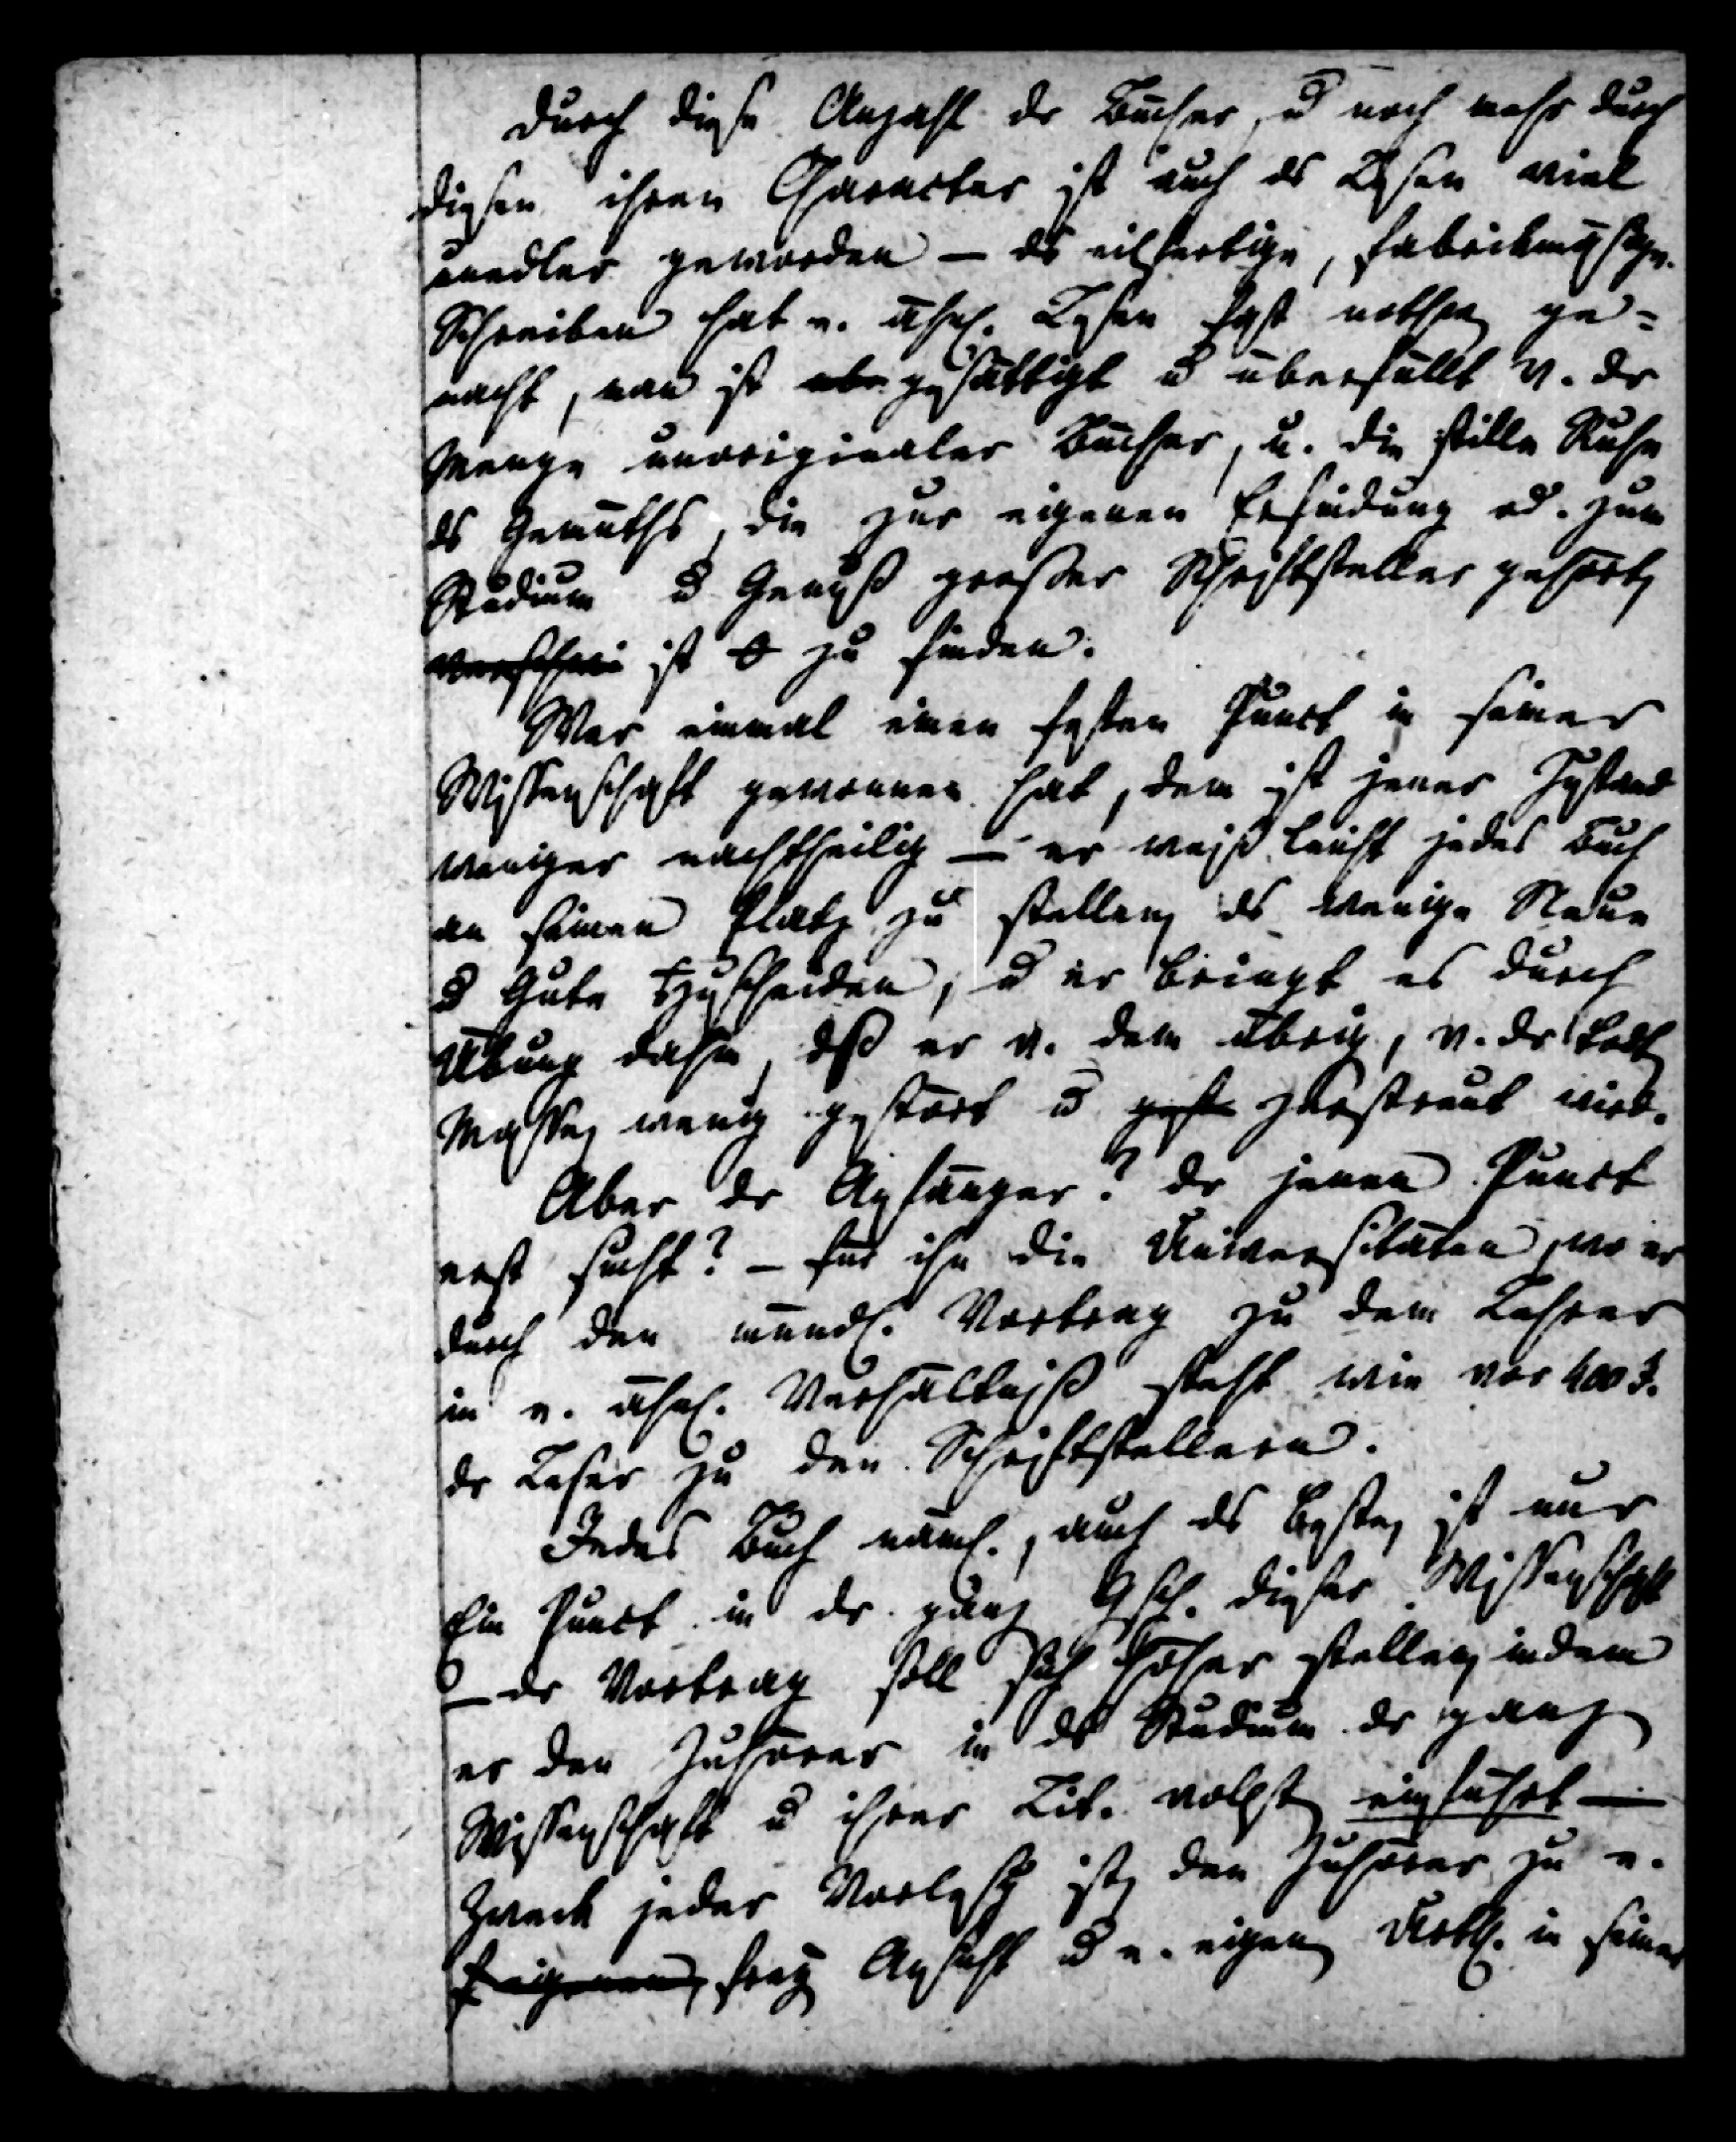 Durch diese Anzahl dr Bücher, u noch mehr durch
diesen ihren Character ist auch ds Lesen viel
unedler geworden — ds eilfertige, fabrikmäßige
Schreiben hat e. ähnl. Lesen fast nothw. ge=
macht, man ist übergesättigt u überfüllt v. dr
Menge unorigineller Bücher, u. die stille Ruhe
ds Gemüths, die zur eigenen Erfindung od. zum
Studium u Genuß großer Schriftsteller gehört,
ist 0 zu finden.
Wer einmal einen festen Punct in seiner
Wissenschaft gewonnen hat, dem ist jener Zustand
weniger nachtheilig — er weiß leicht jedes Buch
an seinen Platz zu stellen, ds wenige Neue
u Gute herauszuscheiden, u er bringt es durch
Übung dahin, dß er v. dem übrig., v. dr todten
Masse, wenig gestört u zerstreut wird.
Aber dr Anfänger? dr jenen Punct
erst sucht? — für ihn die Universitäten, wo er
durch den mündl. Vortrag zu dem Lehrer
in e. ähnl. Verhältniß steht wie vor 400 J.
dr Leser zu den Schriftstellern.
Jedes Buch näml., auch ds beste, ist nur
Ein Punct in dr ganz. Gsch. dieser Wissenschaft
— dr Vortrag soll sich höher stellen, indem
er den Zuhörer in ds Studium dr ganzen
Wissenschaft u ihrer Lit. vollst. einführt —
Zweck jeder Vorlesg ist, den Zuhörer zu e.
freyen Ansicht u e. eigen. Urtheil in seiner